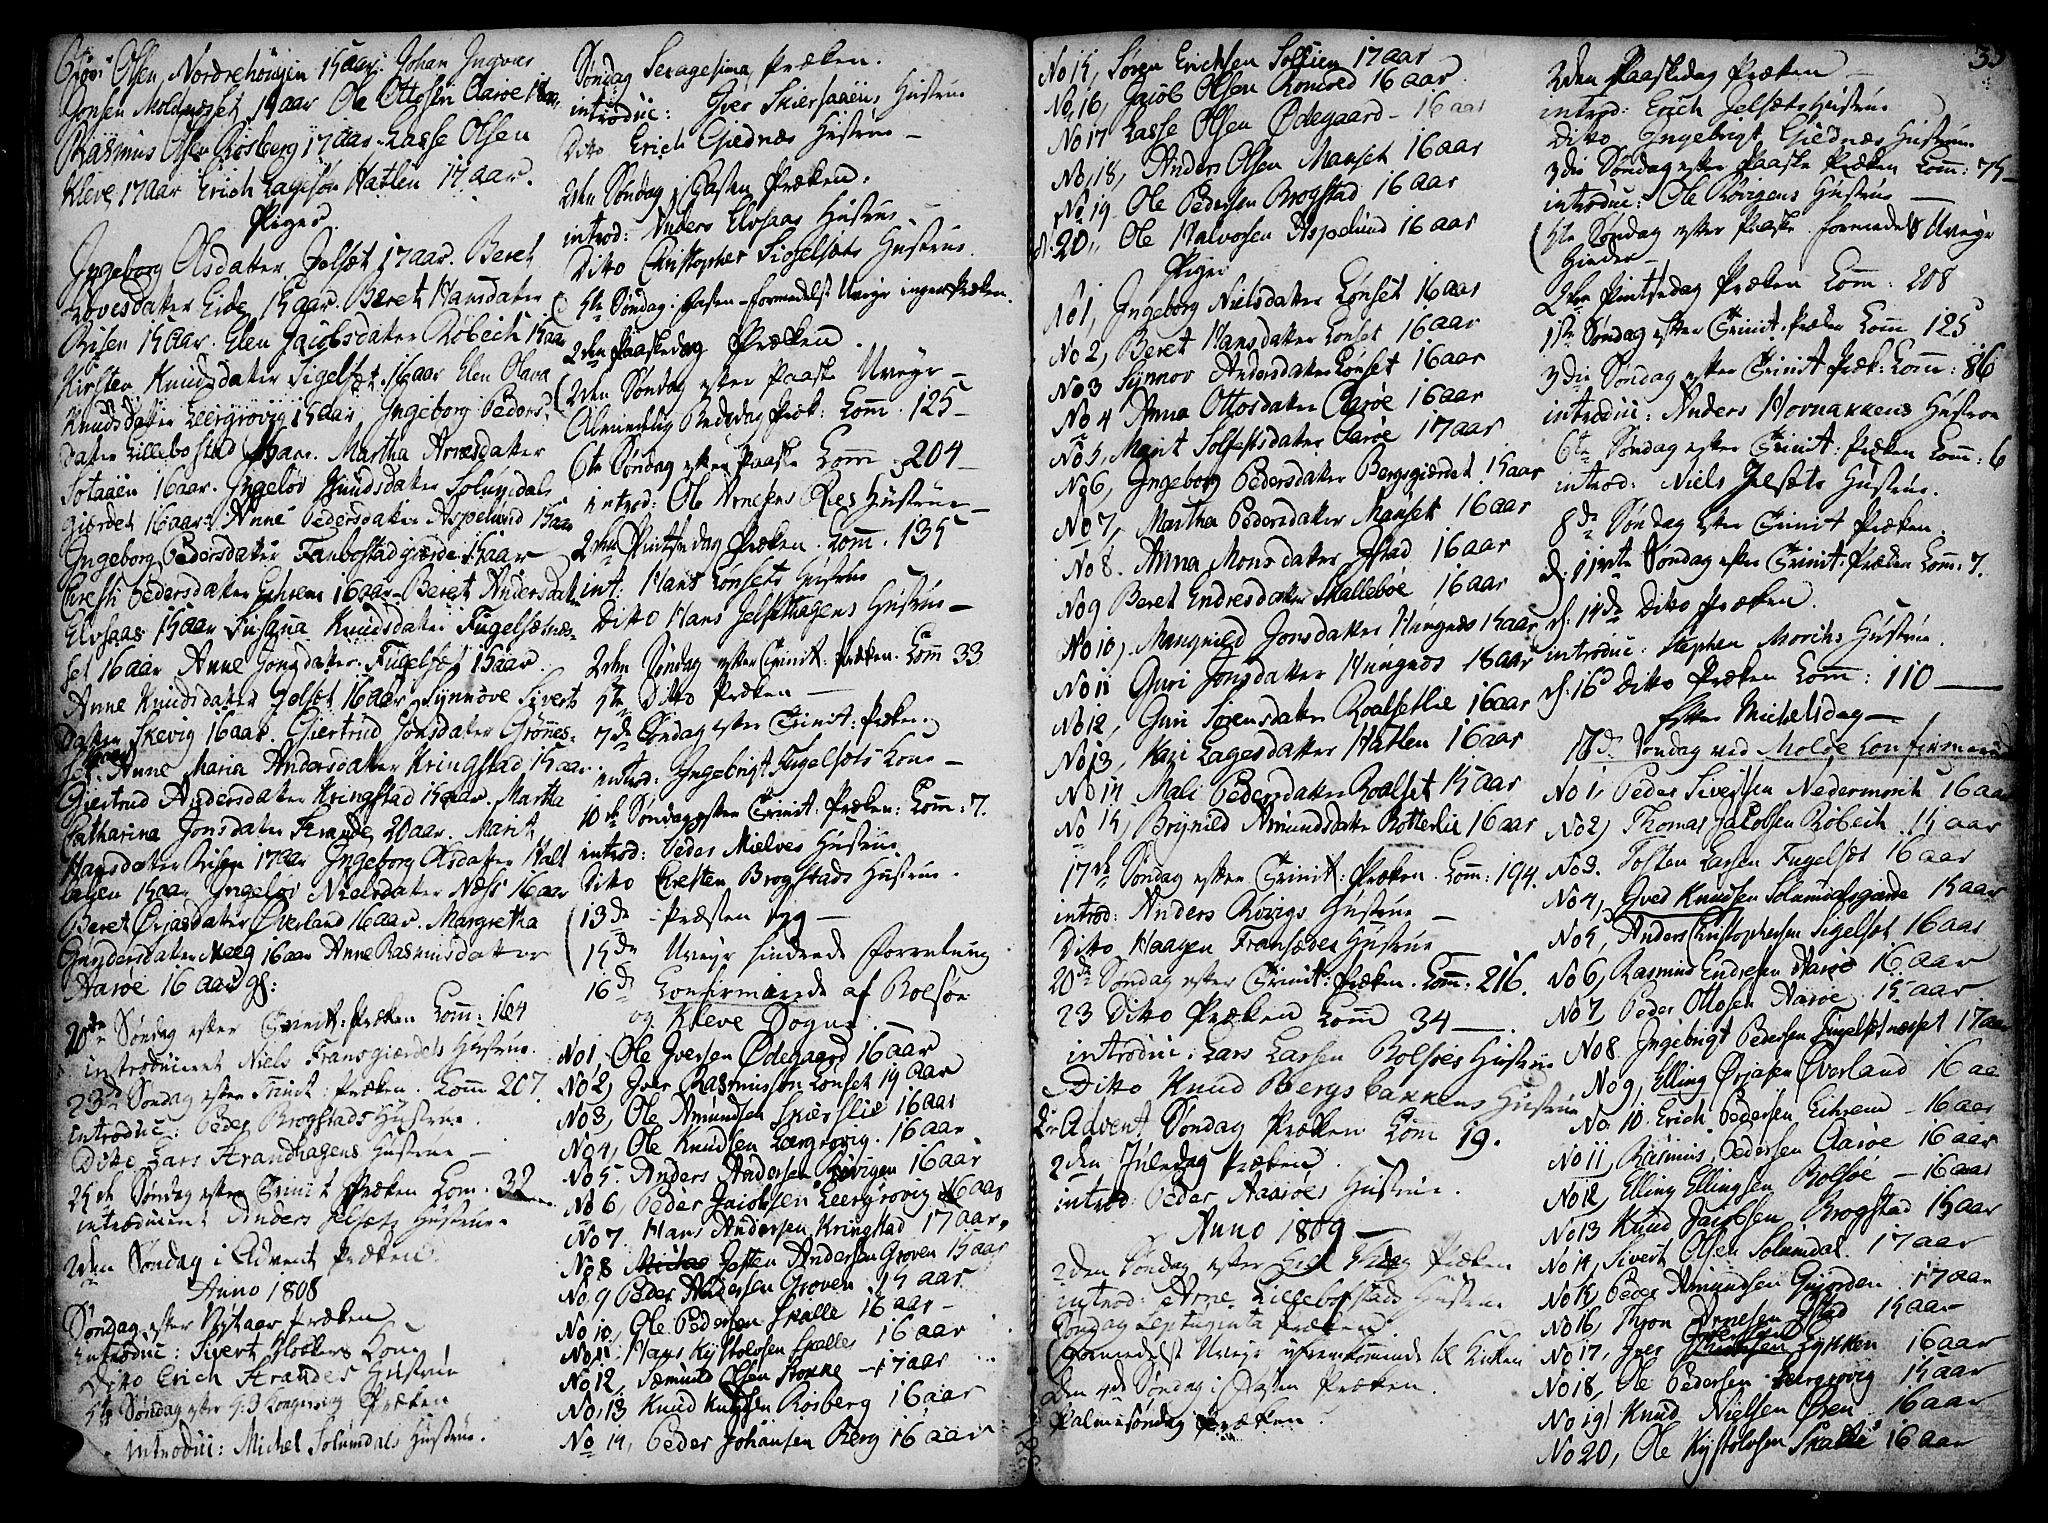 Olsen, Nordrehougen 15 aar. Johan Ingvar
Jonsen Moldegset 15 aar Ole Ottosen Aarøe 18 aar
Rasmus Olsen Røsberg 17 aar. Lasse Olsen
Kleve 17 aar Erich Lagesøn Hatlen 17 aar.
Piger
Ingeborg Olsdatter Jelset 17 aar. Beret
Eide 15 aar. Beret Hansdatter
Risen 15 aar. Elen Jacobsdatter Røbech 15 aar
Kirsten Knudsdatter Sigelset. 16 aar Elen Olava
Knudsdatter Leergrovig 15 aar Ingeborg Peders
datter Lillebostad aar. Martha Arnesdatter
16 aar. Ingeløv Knudsdatter Solumsdals
gierdet 16 aar. Anne Pedersdatter Aspelund 15 aar
Ingeborg Pedersdatter Fanbostadgierde 15 aar
Pedersdatter Eihrem 16 aar. Beret Andersdatter
Elvsaas 15 aar Susana Knudsdatter Fugelsetnes-
set 16 aar Anne Jonsdatter Fugelset 15 aar.
Anne Knudsdatter Jelset 16 aar Synnøve Siverts
datter Skevig 16 aar. Giertrud Jonsdatter Grønnes-
Anne Maria Andersdatter Kringstad 15 aar
Giertrud Andersdatter Kringstad 15 aar. Martha
Catharina Jonsdatter Strande 20 aar. Marit
Hansdatter Risen 17 aar Ingeborg Olsdatter Halt
15 aar Ingeløv Nielsdatter Næss 16 aar
Beret Ørjasdatter Øverland 16 aar. Margretha
Gundersdatter 16 aar Anne Rasmusdatter
Aarøe 16 aar gl:
20de Søndag efter Trinit: Præken Com: 164
introduceret Niels Fransgierdets Hustrue.
23de Søndag efter Trinit: Præken. Com 207.
introduc: Peder Brogstads Hustrue.
Ditto Lars Strandhagens Hustrue —
25de Søndag efter Trinit Præken Com. 32
introduceret Anders Jelsets Hustrue.
2den Søndag i Advent Præken
Anno 1808
Søndag efter Nytaar Præken
introduc: Sivert Kone
Ditto Erich Strandes Hustrue
5te Søndag efter H: 3 Konger Præken
introduc: Michel Solumdals Hustrue.
Søndag Sexagesima Præken.
introduc: Iver Skiersaaens Hustrue
Ditto Erich Giednæs Hustrue —
2den Søndag i Fasten Præken.
introd: Anders Elvsaas Hustrue —
Ditto Christopher Sigelsets Hustrue
5te Søndag i Fasten formedelst Uveyr ingen Præken.
2den Paaskedag Præken.
2den Søndag efter Paaske Uveyr —
Almindelig Bededag Præk: Com. 125 —
6te Søndag efter Paaske Com. 204 —
introd: Ole Arnesens Hustrue —
2den Pintsedag Præken. Com. 135
int: Hans Lønsets Hustrue
Ditto Hans Jelsethagens Hustrue —
2den Søndag efter Trinit: Præken. Com 33
5te Ditto Præken —
7de Søndag efter Trinit: Præken
introd: Ingebrigt Fugelsets Kone —
10de Søndag efter Trinit: Præken: Com: 7.
introd: Peder Mielves Hustrue
Ditto Cresten Brogstads Hustrue.
13de Præsten syg —
15de Uveyr hindrede Forretning
16de Confirmerede af Bolsøe
og Kleve Sogne. —
No 1, Ole Iversen Ødegaard 16 aar
No 2, Iver Rasmussøn Lønset 19 aar
No 3, Ole Amundsen Skierslie 16 aar
No 4, Ole Knudsen Leergrovig. 16 aar
No 5. Anders Andersen Røvigen 16 aar
No 6, Peder Jacobsen Leergrovig 16 aar
No 7. Hans Andersen Kringstad 17 aar.
No 8 Josten Andersen Groven 15 aar
No 9 Peder Andersen Groven 15 aar
No 10, Ole Pedersen Skalle 16 aar —
No 11 Hans Kystolvsen Skalle 16 aar
No 12, Sæmund Olsen 17 aar
No 13 Knud Knudsen Røsberg 16 aar
No 14, Peder Johansen Berg 16 aar
No 15, Søren Erichsen Solslien 17 aar
No 16, Jacob Olsen Romsed 16 aar
No 17 Lasse Olsen Ødegaard 16 aar
No 18, Anders Olsen Manset 16 aar
No 19. Ole Pedersen Brogstad 16 aar
N. 20,, Ole Halvorsen Aspelund 16 aar
Piger
No 1, Ingeborg Nielsdatter Lønset 16 aar
No 2, Beret Hansdatter Lønset 16 aar
No 3 Synnøv Andersdatter Lønset 16 aar
No 4 Anna Ottosdatter Aarøe 16 aar
No 5, Marit Solfestsdatter Aarøe 17 aar
No 6, Ingeborg Pedersdatter Bergsgierdet 15 aar
No 7, Martha Pedersdatter Manset 16 aar
No 8. Anna Monsdatter Istad 16 aar
No 9 Beret Endresdatter Skallebøe 16 aar
No 10, Mangnild Jonsdatter Hungnæs 15 aar
No 11 Guri Jonsdatter Hungnæs 18 aar
No 12, Guri Sørensdatter Roalsetlie 16 aar
No 13, Kari Lagesdatter Hatlen 16 aar
No 14 Mali Pedersdatter Roalset 15 aar
No 15, Brynild Amundsdatter Rotterlie 16 aar
17de Søndag efter Trinit: Præken. Com: 194.
introd: Anders Røvigs Hustrue —
Ditto Haagen Fransædes Hustrue —
20de Søndag efter Trinit: Præken. Com: 216.
23 Ditto Præken Com 34 —.
introduc: Lars Larsen Bolsøes Hustrue
Ditto Knud Bergsbakkens Hustrue
Advent Søndag Præken Com 19.
2den Juledag Præken.
introd: Peder Aarøes Hustrue.
Anno 1809 —
2den Søndag efter Præken
introd: Arne Lillebostads Hustrue
Søndag Septuginta Præken.
formedelst Uveyr til Kirken
Den 4de Søndag i Fasten Præken.
Palmesøndag Præken.
33
2den Paaskedag Præken —
introd: Erich Jelsets Hustrue
Ditto Ingebrigt Giednæs Hustrue
3die Søndag efter Paaske Præken Com: 75 —
introduc: Ole Røvigens Hustrue —
5te Søndag efter Paaske. formedelst Uveyr
Hinder —
2den Pintsedag Præken Com. 208
1ste Søndag efter Trinit: Præken Com 125
3die Søndag efter Trinit Præk: Com: 86
introduc: Anders Hovnakkens Hustrue
6te Søndag efter Trinit: Præken Com: 6
introd: Niels Jelsets Hustrue.
8de Søndag efter Trinit Præken.
d. 11vte Søndag efter Trinit: Præken Com: 7.
d. 14de Ditto Præken.
introduc: Stephen Moriths Hustrue.
d. 16d Ditto Præken Com: 110 —
Efter Michelsdag —
17de Søndag ved Molde Confirmerede
No 1, Peder Sivertsen Nedermorit 16 aar
No 2, Thomas Jacobsen Røbech 15 aar
No 3. Tosten Larsen Fugelset 16 aar
No 4, Gved Knudsen Solumsdalsgærde 15 aar
No 5, Anders Christophersen Sigelset 16 aar
No 6, Rasmus Endresen Aarøe 16 aar
No 7 Peder Ottosen Aarøe 15 aar
No 8. Ingebrigt Pedersen Fugelsetnesset 17 aar
No 9, Elling Ørjasen Øverland 16 aa
No 10. Erich Pedersen Eihrem — 16 aar
No 11, Rasmus Pedersen Aarøe 16 aar
No 12, Elling Ellingsen Bolsøe — 16 aar
No 13 Knud Jacobsen Brogstad 15 aar
No 14, Sivert Olsen Solumdal 17 aar
No 15 Peder Amundsen Gujorden 17 aar
No 16, Thjøn Arnesen Istad 15 aar
No 17, Iver Lykken 16 aar
No 18, Ole Pedersen Leergrovig 15 aar
No 19, Knud Nielsen Øren 16 aar
No 20, Ole Kystolvsen Skalle 16 aar